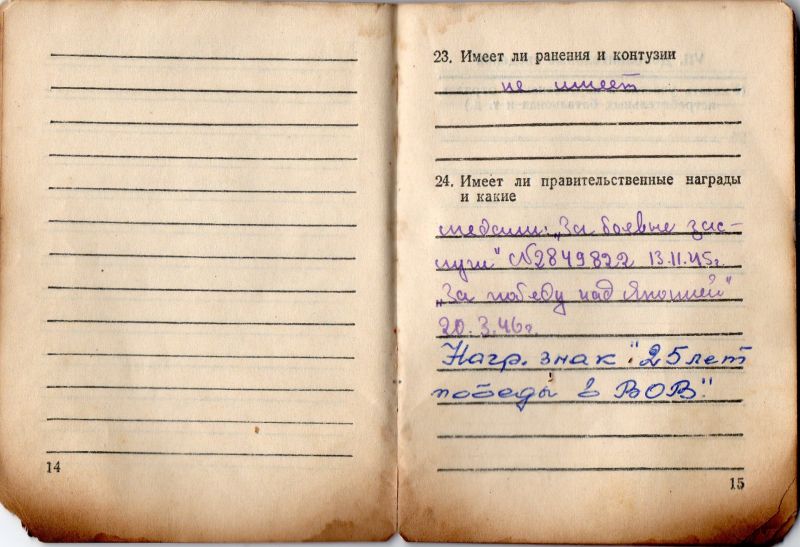 14
23. Имеет ли ранения и контузии
не имеет
24. Имеет ли правительственные награды
и какие
медали: „За боевые зас-
луги" №2849822 13.11.45г.
„За победу над Японией"
20.3.46г.
Нагр. знак "25 лет
победы в ВОВ".
15